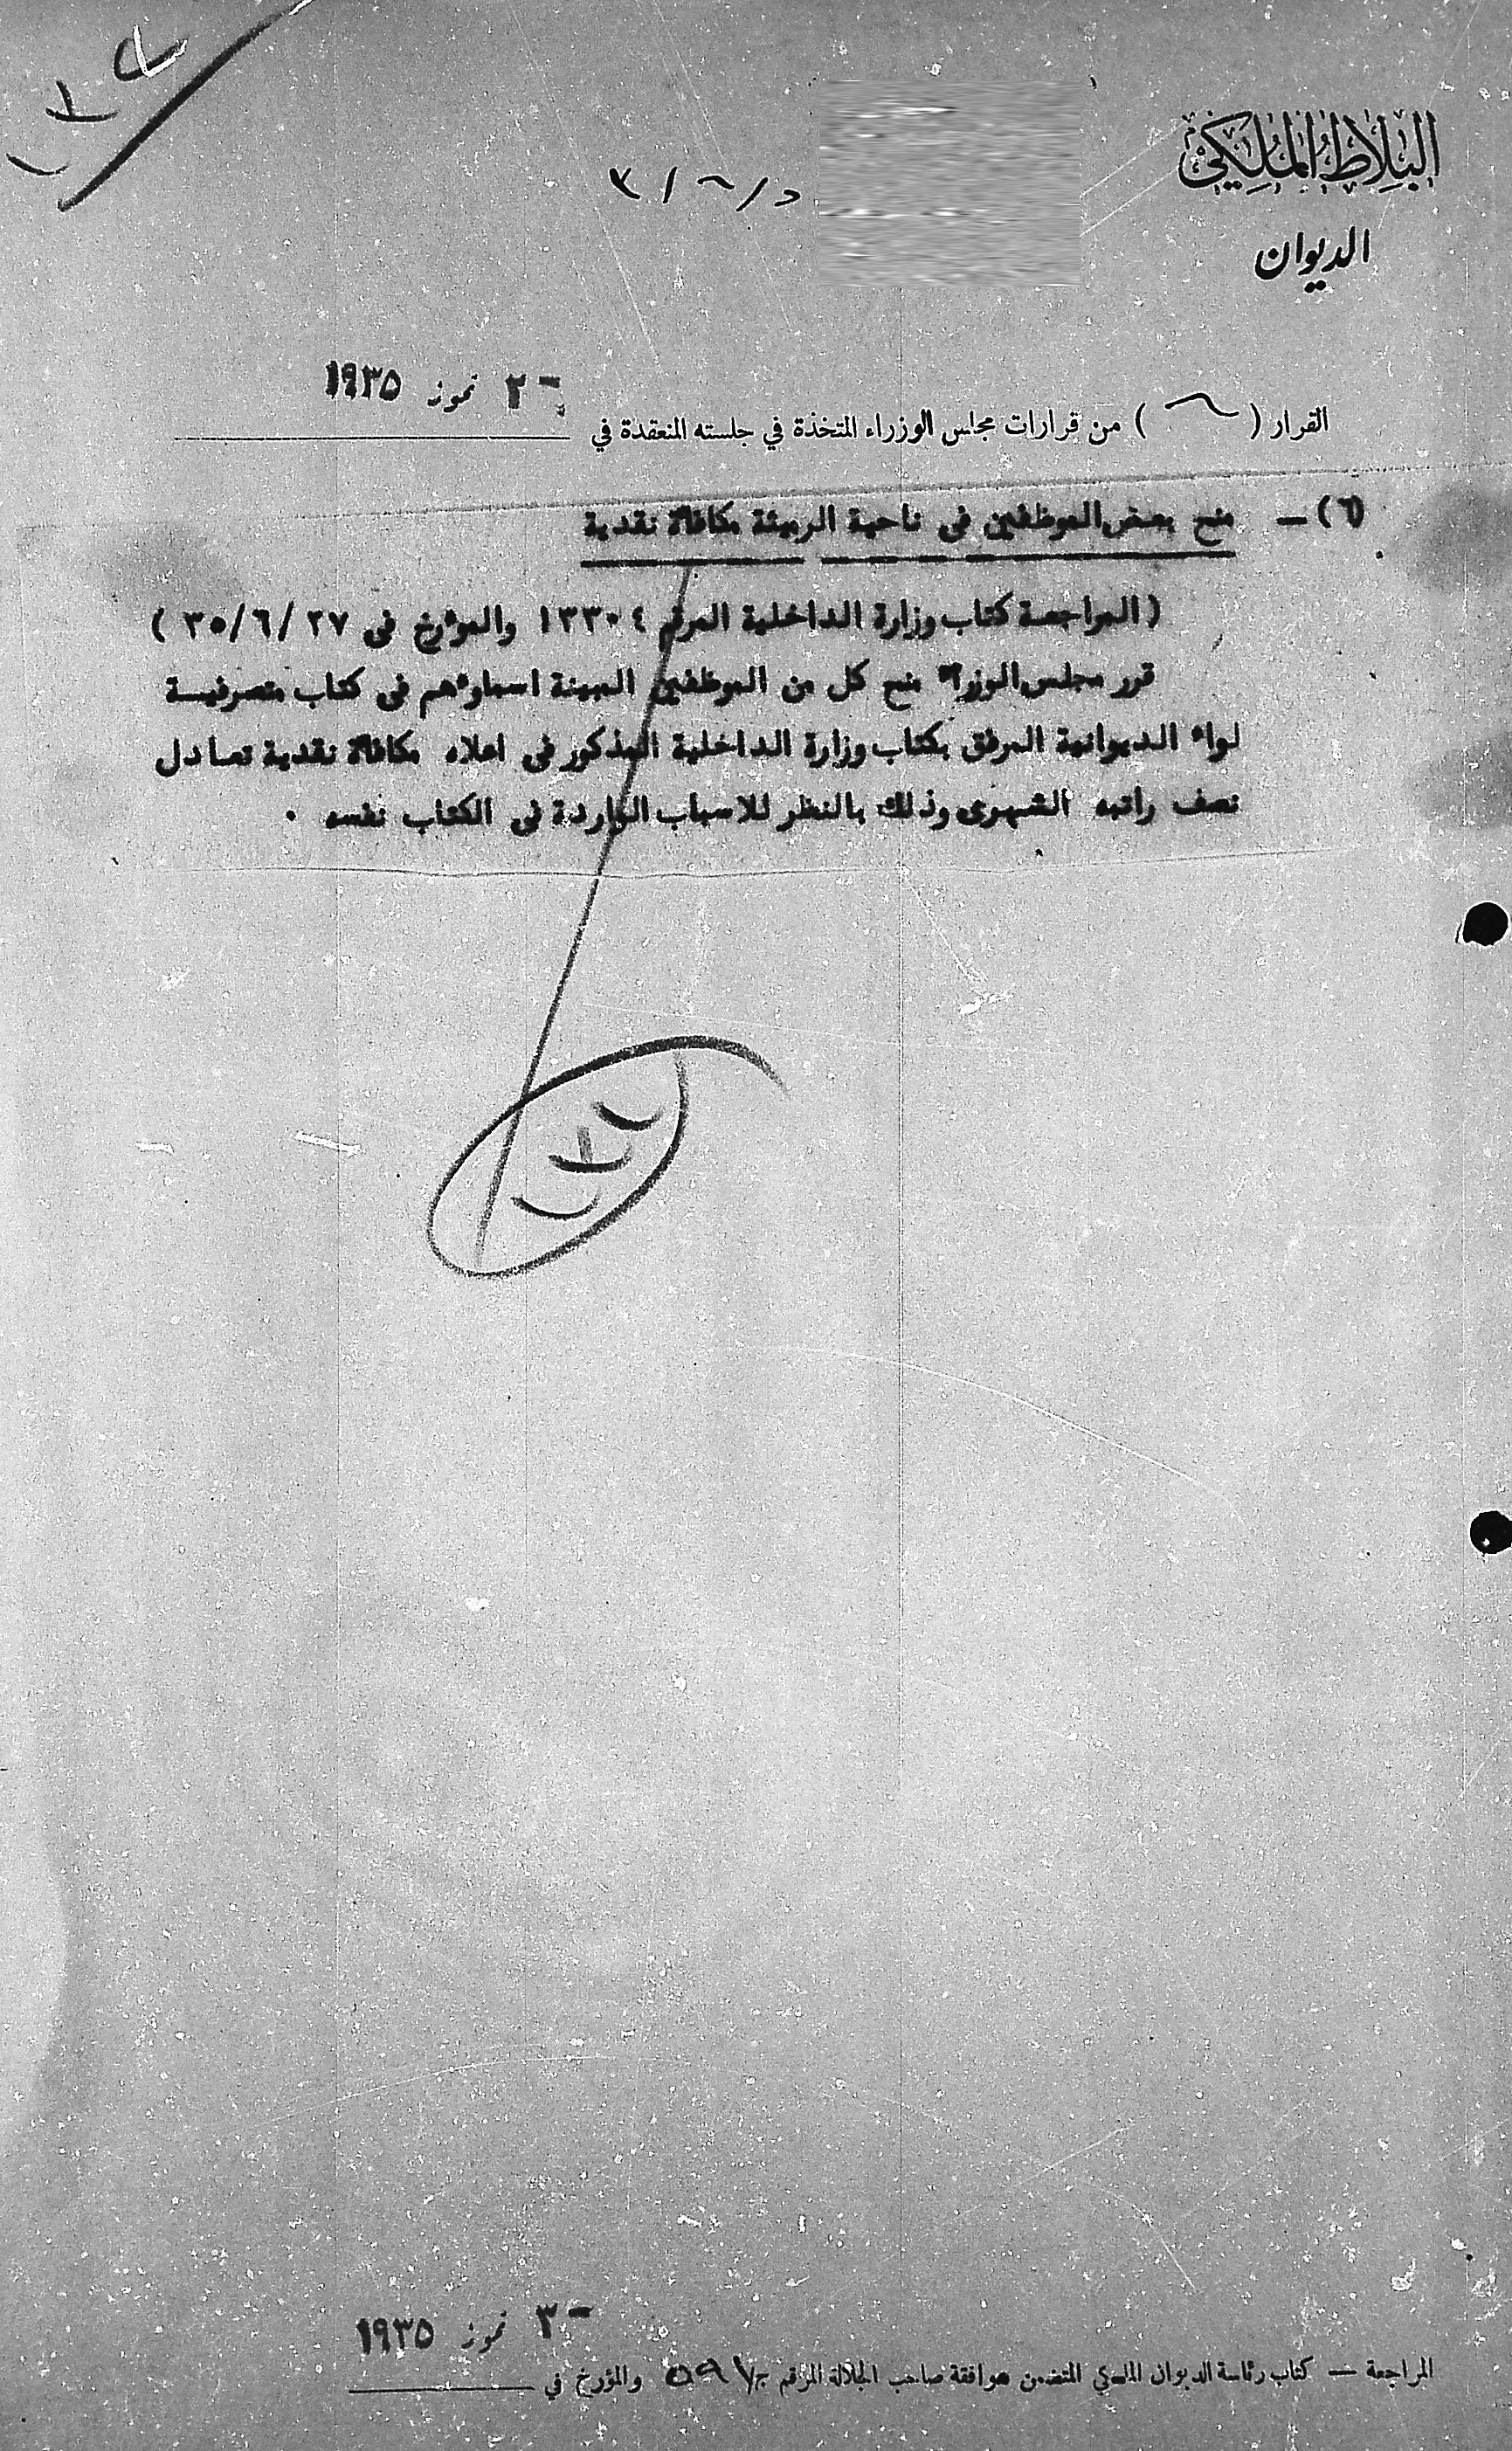 البلاط الملكي
الديوان
د/٦/٣
٢- تموز ١٩٣٥
القرار (٦) من قرارات مجلس الوزراء المتخذة في جلسته المنعقدة في
(٦) — منح بعض الموظفين في ناحية الرميثة مكافاة نقدية
(المراجعة كتاب وزارة الداخلية المرقم ١٣٣٠٤ والمؤرخ في ٢٧/٦/٣٥)
قرر مجلس الوزراء منح كل من الموظفين المبينة اسماؤهم في كتاب متصرفية
لواء الديوانية المرفق بكتاب وزارة الداخلية المذكور في اعلاه مكافاة نقدية تعادل
نصف راتبه الشهري وذلك بالنظر للاسباب الواردة في الكتاب نفسه .
٣- تموز ١٩٣٥
المراجعة — كتاب رئاسة الديوان الملكي المتضمن موافقة صاحب الجلالة المرقم والمؤرخ في